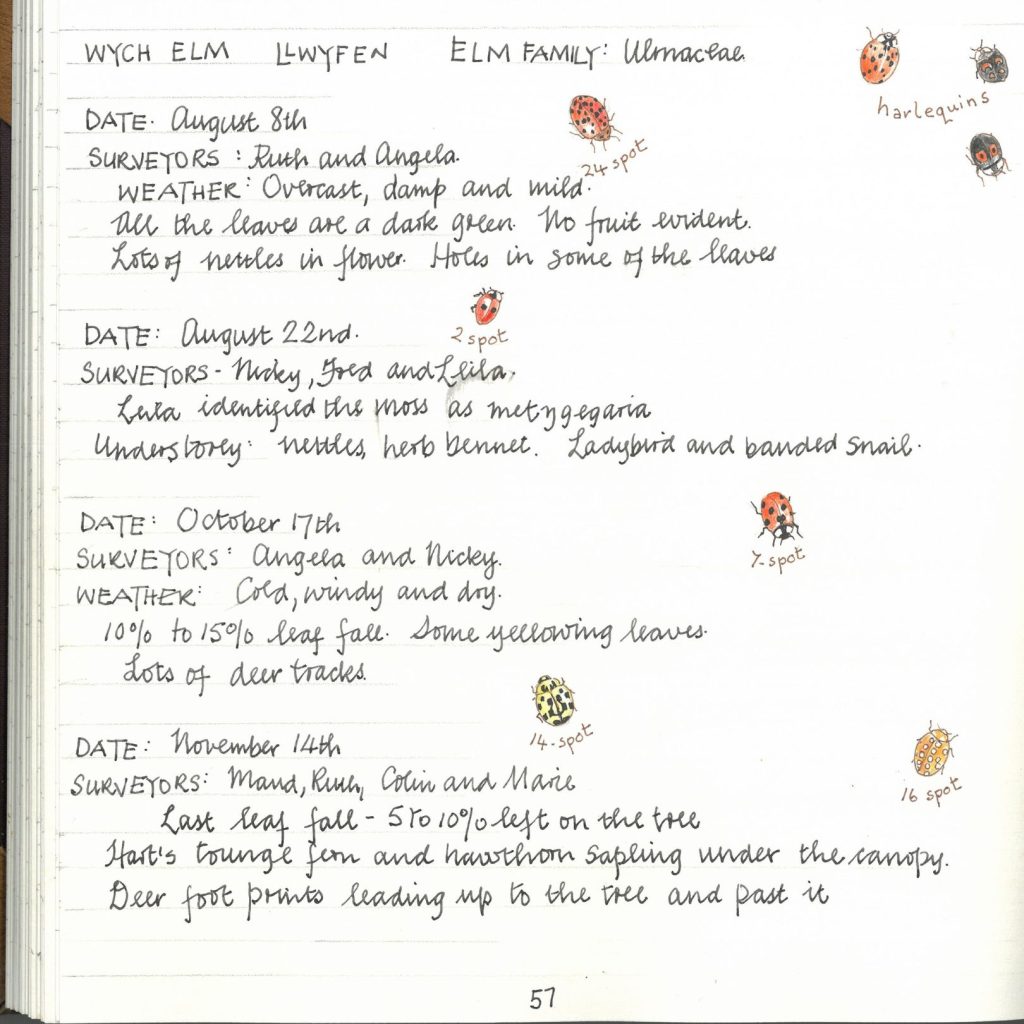 WYCH ELM LLWYFEN ELM FAMILY: Ulmaceae.
harlequins
DATE. August 8th
24 spot
SURVEYORS: Ruth and Angela.
WEATHER: Overcast, damp and mild.
All the leaves are a dark green. No fruit evident.
Lots of nettles in flower. Holes in some of the leaves
2 spot
DATE: August 22nd.
SURVEYORS - Nicky, Fred and Leila.
Leila identified the moss as metzgegaria
Understorey: nettles, herb bennet. Ladybird and banded snail.
DATE: October 17th
7-spot
SURVEYORS: Angela and Nicky.
WEATHER: Cold, windy and dry.
10% to 15% leaf fall. Some yellowing leaves.
Lots of deer tracks.
14-spot
DATE: November 14th
16 spot
SURVEYORS: Maud, Ruth, Colin and Marie
Last leaf fall - 5 to 10% left on the tree
Hart's tounge fern and hawthorn sapling under the canopy.
Deer foot prints leading up to the tree and past it
57